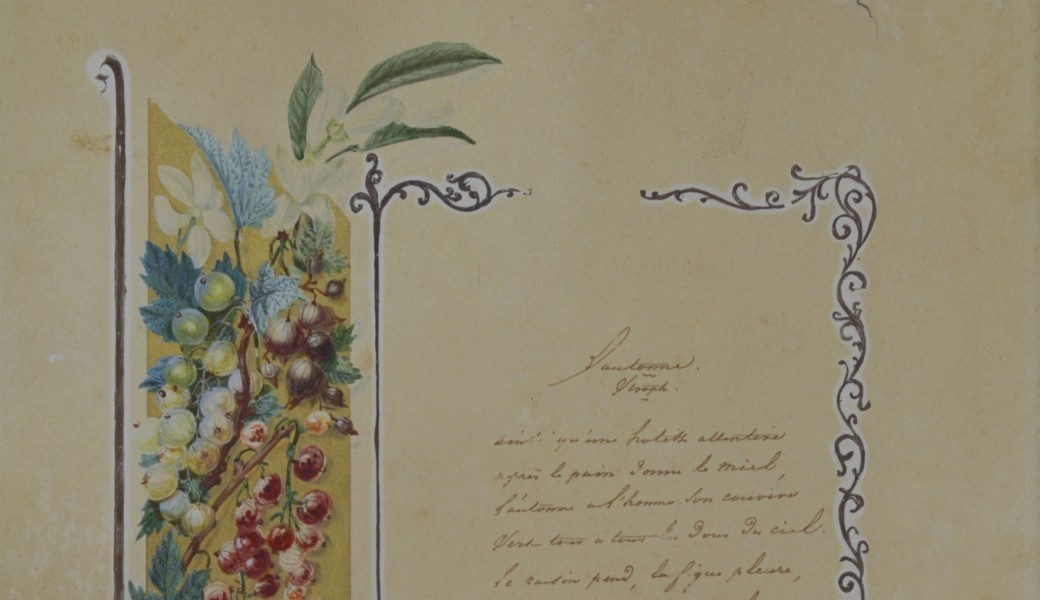 L'automne.
Stroph.
ainsi qu'une hotesse attentive
après le pain donne le miel,
l'automne a l'homme son convive
Sert tour a tour les dons du ciel.
le raisin pend, la figue pleure,